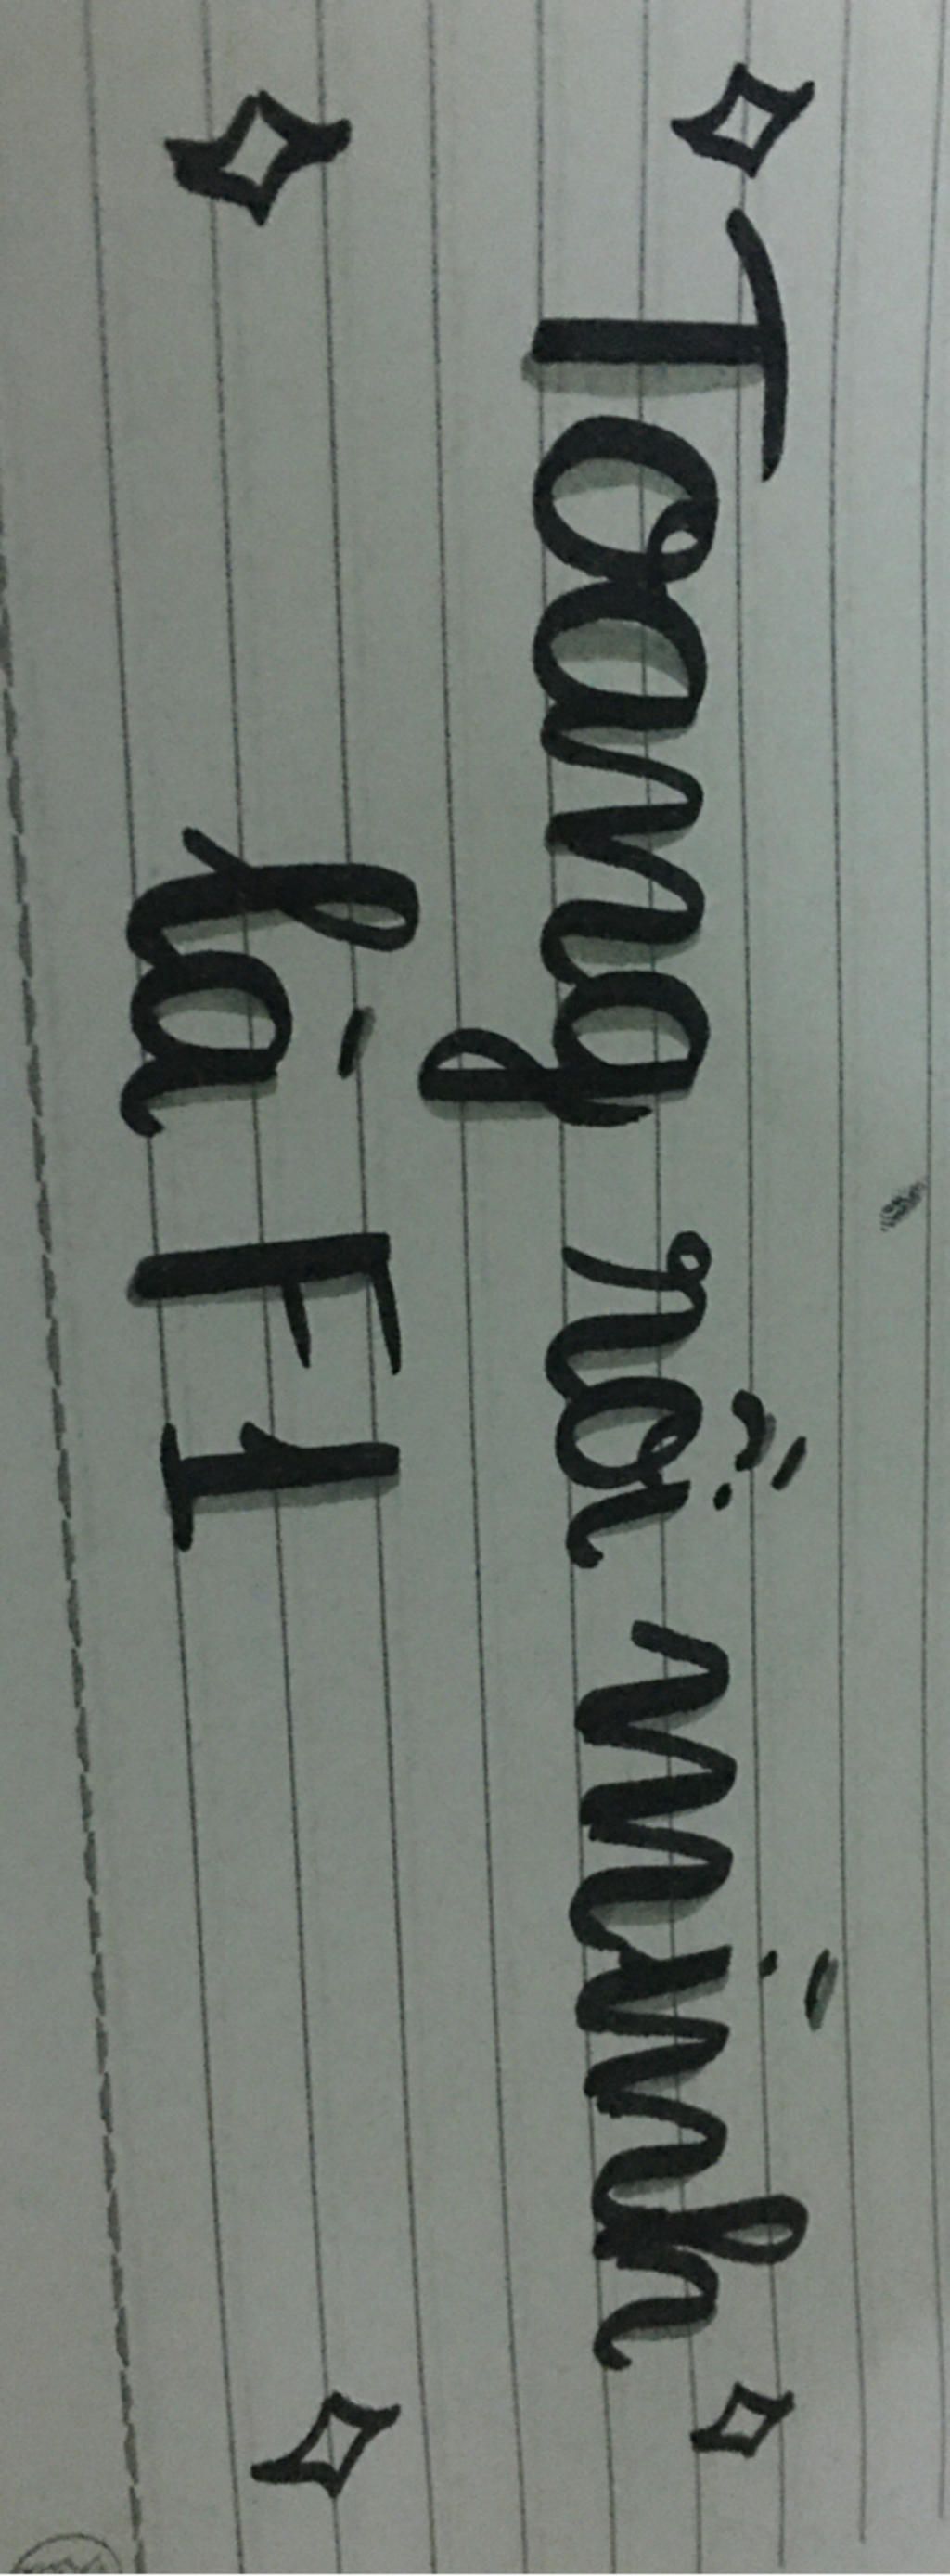 Toang rồi mình
là F1